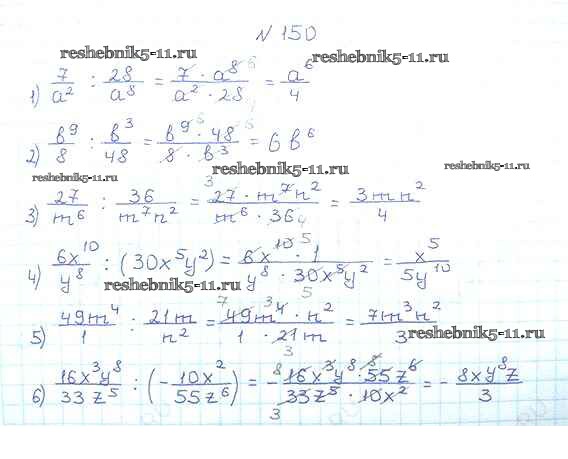 № 150
reshebnik5-11.ru
reshebnik5-11.ru
1) 7/a² : 28/a⁸ = 7 · a⁸ ⁶/a² · 28 = a⁶/4
2) в⁹/8 : в³/48 = в⁹ ⁶ · 48 ⁶/8 · в³ = 6в⁶
reshebnik5-11.ru
reshebnik5-11.ru
reshebnik5-11.ru
3) 27/m⁶ : 36/m⁷n² = ³ 27 · m⁷n²/m⁶ · 36 ₄ = 3mn²/4
4) 6x¹⁰/y⁸ : (30x⁵y²) = 6x¹⁰ ⁵ · 1/y⁸ · 30x⁵y² = x⁵/5y¹⁰
reshebnik5-11.ru
5) 49m⁴/1 : 21m/n² = ⁷ 49m⁴ ³ · n²/1 · 21m ₃ = 7m³n²/3
reshebnik5-11.ru
6) 16x³y⁸/33z⁵ : (-10x²/55z⁶) = - ⁸ 16x³y⁸ · ⁵ 55z⁶/₃ 33z⁵ · 10x² = - 8xy⁸z/3